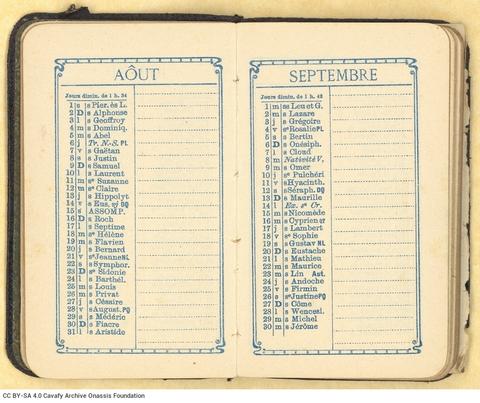 AOÛT
Jours dimin. de 1 h. 34
1 s s Pier. ès L.
2 D s Alphonse
3 l s Geoffroy
4 m s Dominiq.
5 m s Abel
6 j Tr. N.-S. PL
7 v s Gaëtan
8 s s Justin
9 D s Samuel
10 l s Laurent
11 m se Suzanne
12 m se Claire
13 j s Hippolyt
14 v s Eus. vj DQ
15 s ASSOMP.
16 D s Roch
17 l s Septime
18 m se Hélène
19 m s Flavien
20 j s Bernard
21 v se Jeanne NL
22 s s Symphor.
23 D se Sidonie
24 l s Barthél.
25 m s Louis
26 m s Privat
27 j s Césaire
28 v s August. PQ
29 s s Médéric
30 D s Fiacre
31 l s Aristide
SEPTEMBRE
Jours dimin. de 1 h. 42
1 m s Leu et G.
2 m s Lazare
3 j s Grégoire
4 v se Rosalie PL
5 s s Bertin
6 D s Onésiph.
7 l s Cloud
8 m Nativité V.
9 m s Omer
10 j se Pulchéri
11 v s Hyacinth.
12 s s Séraph. DQ
13 D s Maurille
14 l Ex. se Cr.
15 m s Nicomède
16 m s Cyprien QT
17 j s Lambert
18 v se Sophie
19 s s Gustav NL
20 D s Eustache
21 l s Mathieu
22 m s Maurice
23 m s Lin Aut.
24 j s Andoche
25 v s Firmin
26 s se Justine PQ
27 D s Côme
28 l s Wencesl.
29 m s Michel
30 m s Jérôme
CC BY-SA 4.0 Cavafy Archive Onassis Foundation